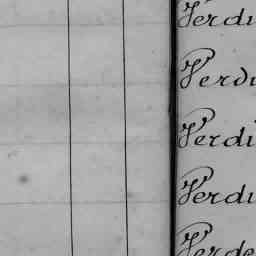 Verdi
Verdi
Verdi
Verdi
Verde